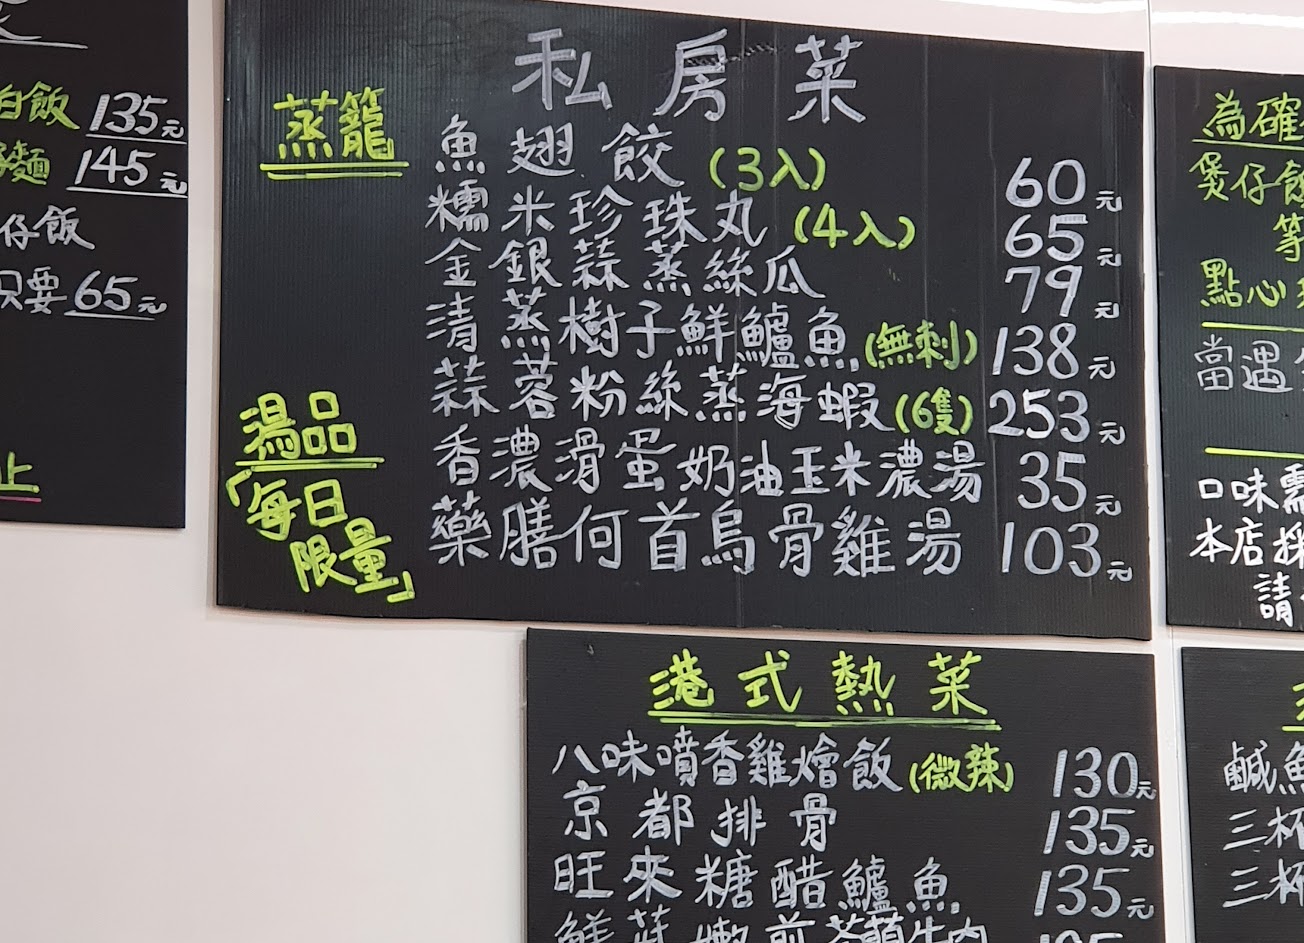 白飯 135元
麵 145元
仔飯
只要65元
止
私房菜
蒸籠
魚翅餃(3入) 60元
糯米珍珠丸(4入) 65元
金銀蒜蒸絲瓜 79元
清蒸樹子鮮鱸魚(無刺) 138元
蒜蓉粉絲蒸海蝦(6隻) 253元
湯品
「每日
限量」
香濃滑蛋奶油玉米濃湯 35元
藥膳何首烏骨雞湯 103元
港式熱菜
八味噴香雞燴飯(微辣) 130元
京都排骨 135元
旺來糖醋鱸魚 135元
為確
煲仔飯
等
點心
當遇
口味需
本店採
請
鹹魚
三杯
三杯